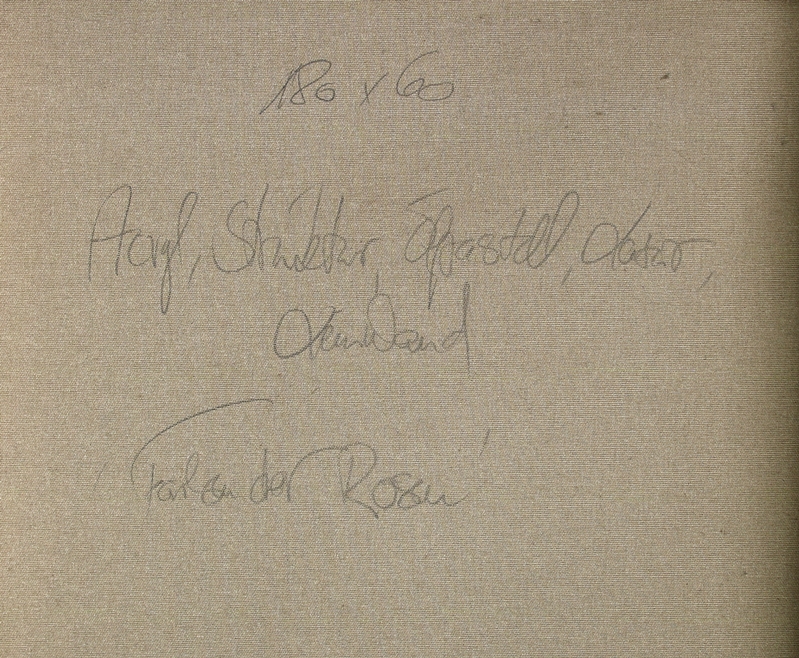 180 x 60
Acryl, Struktur, Ölpastell, Lasur,
Leinwand
'Farben der Rosen'